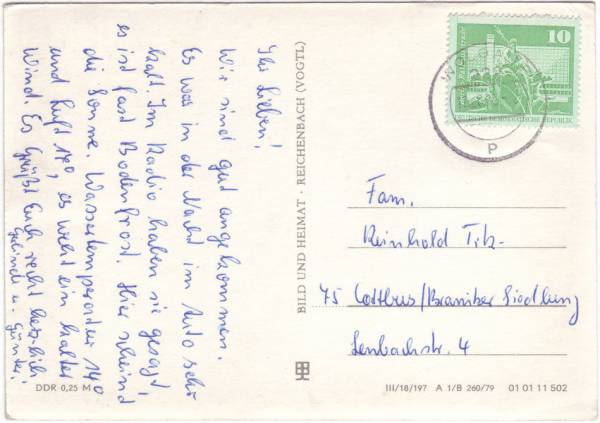 Ihr Lieben!
Wir sind gut angekommen.
Es war in der Nacht im Auto sehr
kalt. Im Radio haben sie gesagt,
es ist fast Bodenfrost. Hier scheind
die Sonne. Wassertemperatur 14°
und Luft 17°, es weht ein kalter
Wind. Es Grüßt Euch recht herzlich
u. Günter.
BILD UND HEIMAT · REICHENBACH (VOGTL)
10
DEUTSCHE DEMOKRATISCHE REPUBLIK
P
Fam.
Reinhold
75 Cottbus/Branitzer Siedlung
Lenbachstr. 4
DDR 0,25 M
III/18/197 A 1/B 260/79 01 01 11 502